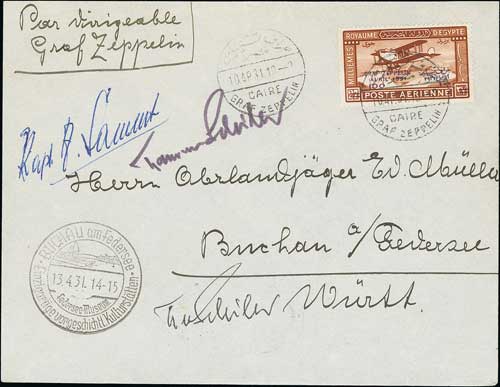 Par dirigeable
Graf Zeppelin
10.AP.31.10
CAIRE
GRAF ZEPPELIN
MILLIEMES ROYAUME D'EGYPTE
GRAF ZEPPELIN
AVRIL 1931
POSTE AERIENNE
CAIRE
GRAF ZEPPELIN
Kapt. A. Sammt
Herrn Oberlandjäger Ed. Müller
Buchau a/Federsee
Württ.
BUCHAU am Federsee
13.4.31. 14-15
Federsee Museum
Einzigartige vorgeschichtl. Kulturstätten